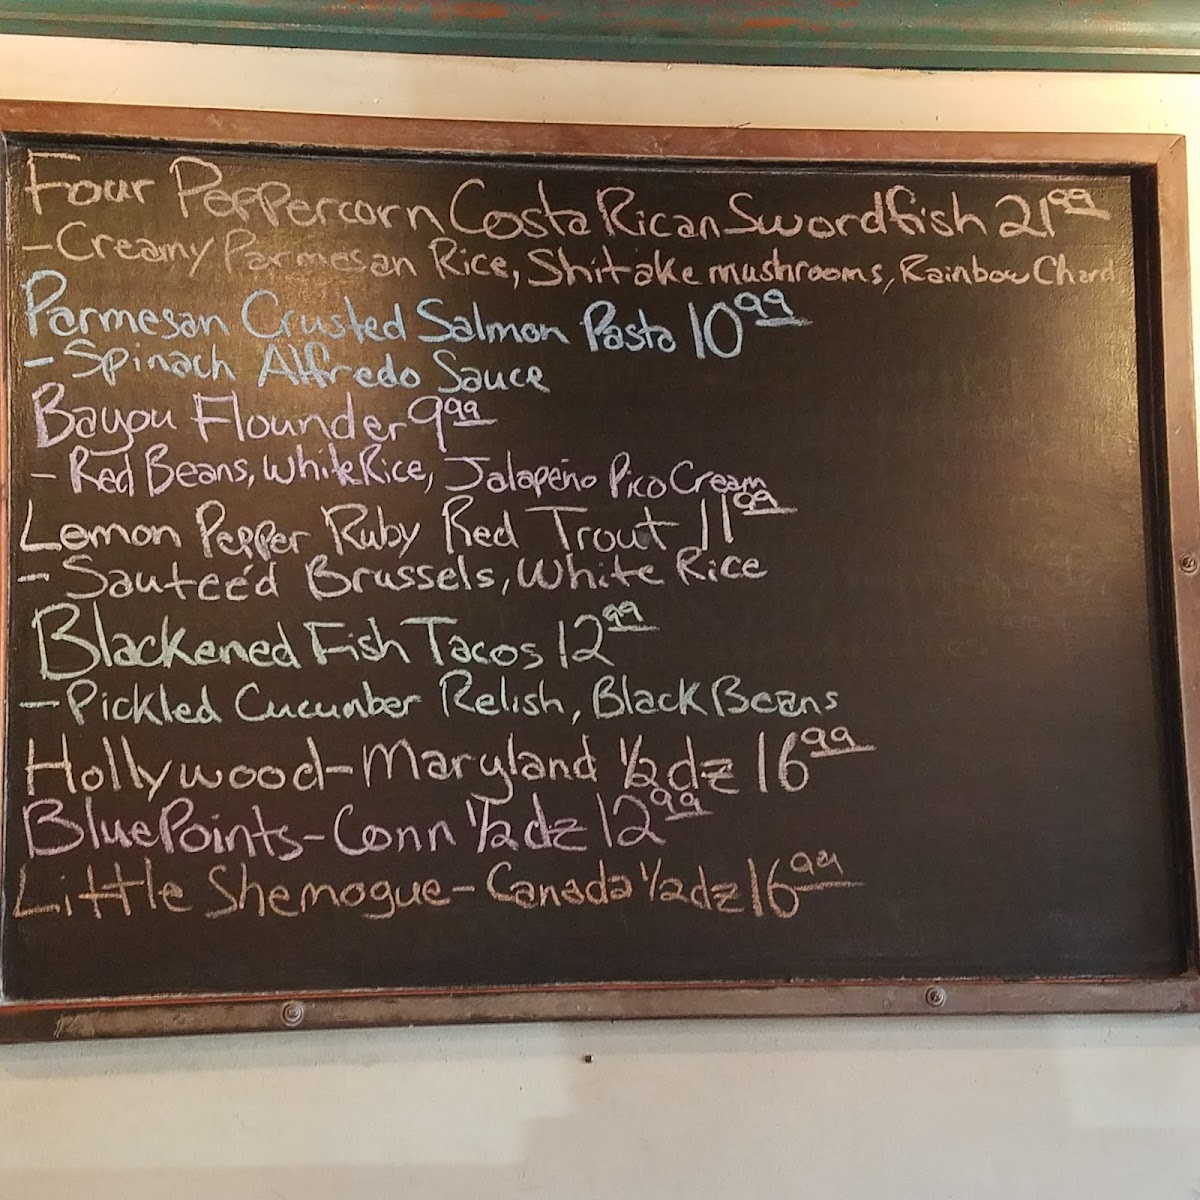 Four Peppercorn Costa Rican Swordfish 21.99
- Creamy Parmesan Rice, Shitake mushrooms, Rainbow Chard
Parmesan Crusted Salmon Pasta 10.99
- Spinach Alfredo Sauce
Bayou Flounder 9.99
- Red Beans, White Rice, Jalapeño Pico Cream
Lemon Pepper Ruby Red Trout 11.99
- Sauteé'd Brussels, White Rice
Blackened Fish Tacos 12.99
- Pickled Cucumber Relish, Black Beans
Hollywood - Maryland 1/2 dz 16.99
Blue Points - Conn 1/2 dz 12.99
Little Shemogue - Canada 1/2 dz 16.99